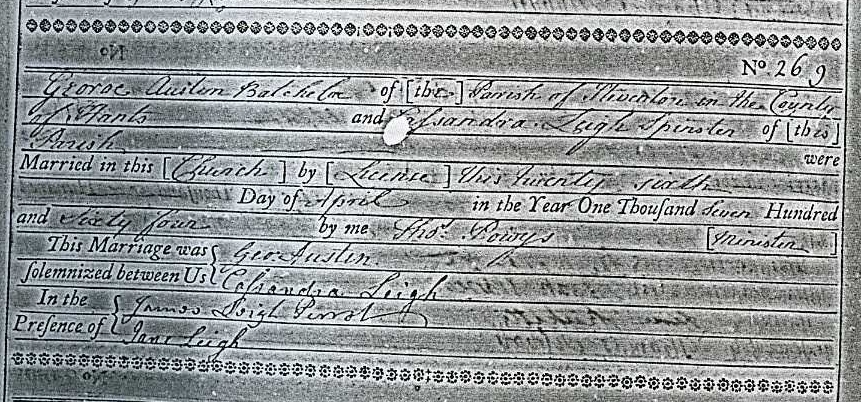 No. 269
George Austen Batchelor of [the] Parish of Steventon in the County
of Hants and Cassandra Leigh Spinster of [this]
Parish were
Married in this [Church] by [License] this twenty sixth
Day of April in the Year One Thouſand seven Hundred
and sixty four by me Thos. Powys [Minister]
This Marriage was Geo: Austen
ſolemnized between Us Cassandra Leigh
In the James Leigh Perrot
Preſence of Jane Leigh